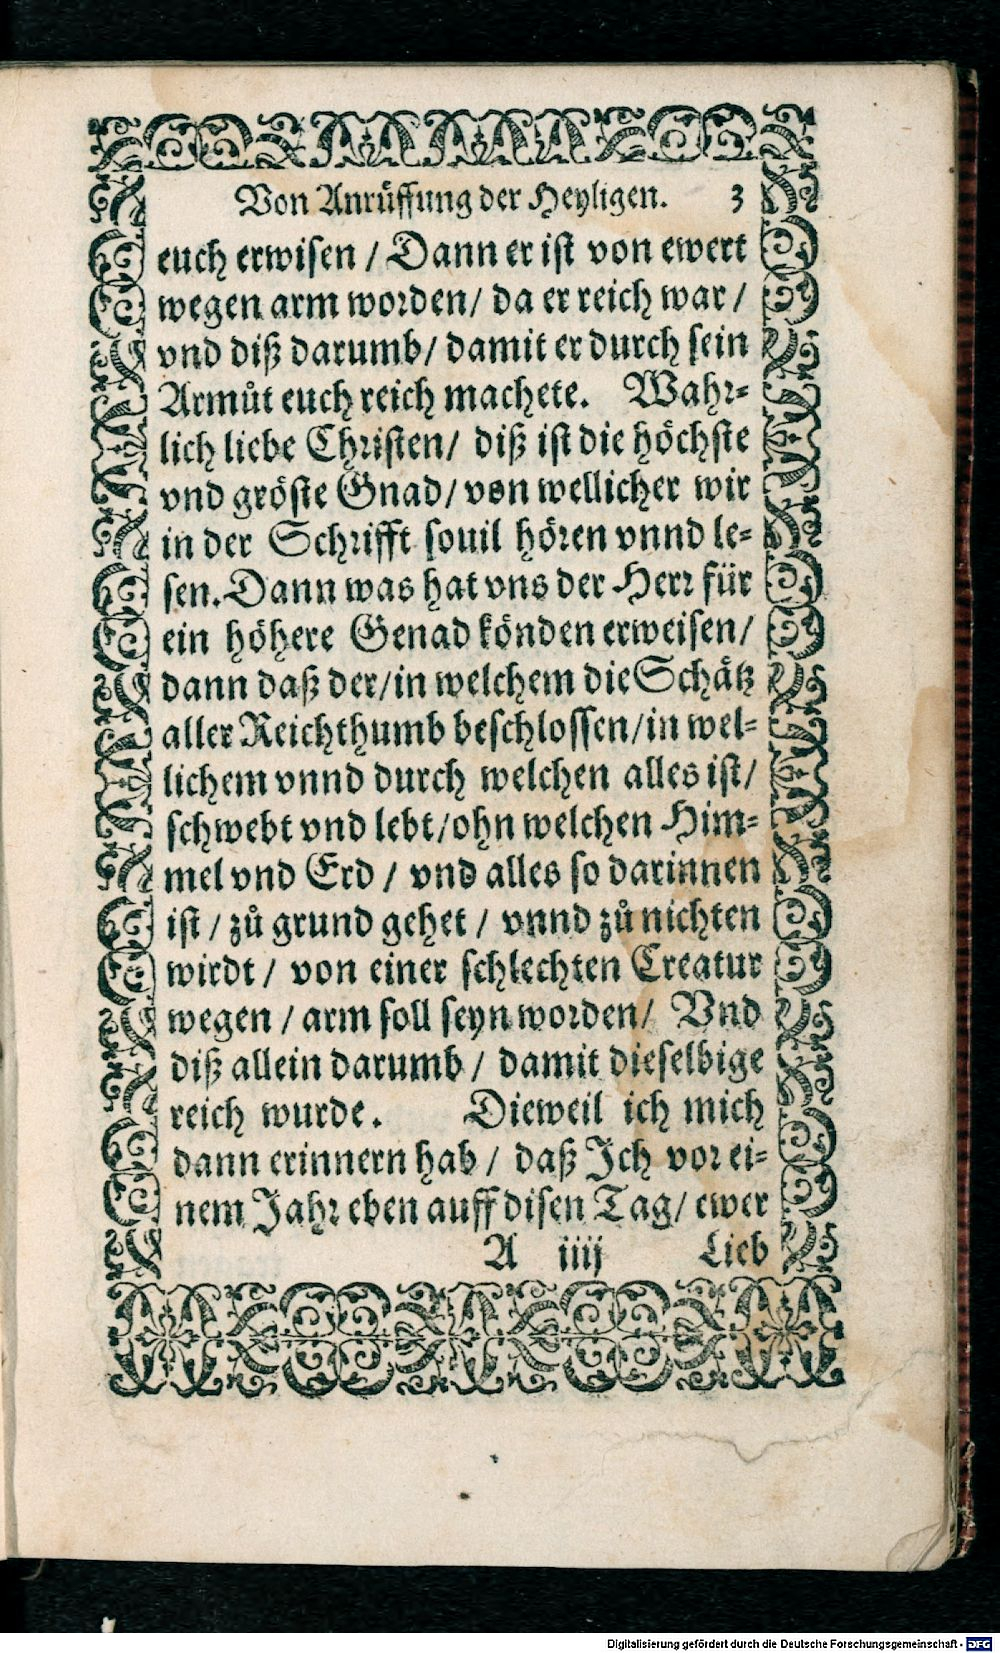 Von Anrüffung der Heyligen. 3
euch erwisen / Dann er ist von ewert
wegen arm worden / da er reich war /
vnd diß darumb / damit er durch sein
Armůt euch reich machete. Wahr-
lich liebe Christen / diß ist die höchste
vnd gröste Gnad / von wellicher wir
in der Schrifft souil hören vnnd le-
sen. Dann was hat vns der Herr für
ein höhere Genad könden erweisen /
dann daß der / in welchem die Schätz
aller Reichthumb beschlossen / in wel-
lichem vnnd durch welchen alles ist /
schwebt vnd lebt / ohn welchen Him-
mel vnd Erd / vnd alles so darinnen
ist / zů grund gehet / vnnd zů nichten
wirdt / von einer schlechten Creatur
wegen / arm soll seyn worden / Vnd
diß allein darumb / damit dieselbige
reich wurde. Dieweil ich mich
dann erinnern hab / daß Ich vor ei-
nem Jahr eben auff disen Tag / ewer
A iiij Lieb
Digitalisierung gefördert durch die Deutsche Forschungsgemeinschaft - DFG